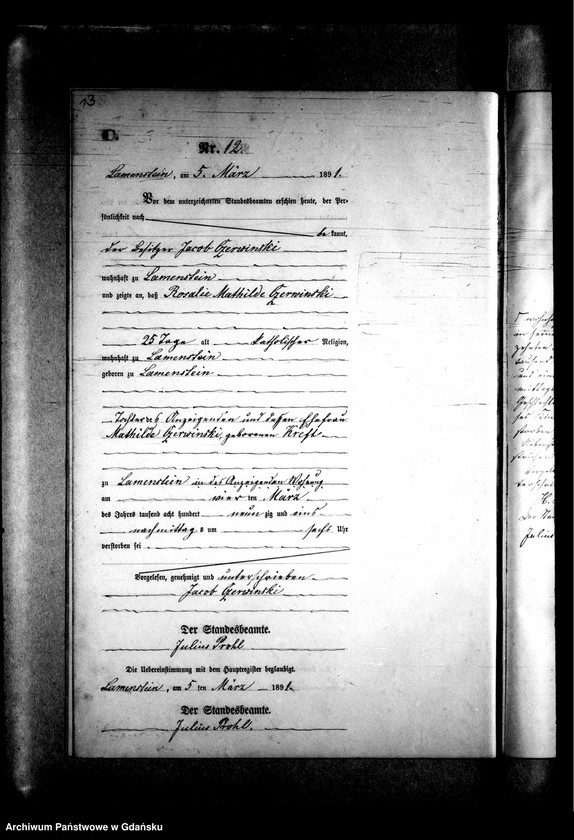 13
C.
Nr. 12.
Lamenstein, am 5. März 1891.
Vor dem unterzeichneten Standesbeamten erschien heute, der Per-
sönlichkeit nach
be kannt,
der Besitzer Jacob Czerwinski
wohnhaft zu Lamenstein
und zeigte an, daß Rosalie Mathilde Czerwinski
25 Tage alt katholischer Religion,
wohnhaft zu Lamenstein
geboren zu Lamenstein
Tochter des Anzeigenden und dessen Ehefrau
Mathilde Czerwinski, geborenen Kreft
zu Lamenstein in des Anzeigenden Wohnung
am vier ten März
des Jahres tausend acht hundert neun zig und eins
nachmittag s um sechs Uhr
verstorben sei
Vorgelesen, genehmigt und unterschrieben
Jacob Czerwinski
Der Standesbeamte.
Julius Prohl
Die Uebereinstimmung mit dem Hauptregister beglaubigt.
Lamenstein, am 5 ten März 1891.
Der Standesbeamte.
Julius Prohl.
Archiwum Państwowe w Gdańsku